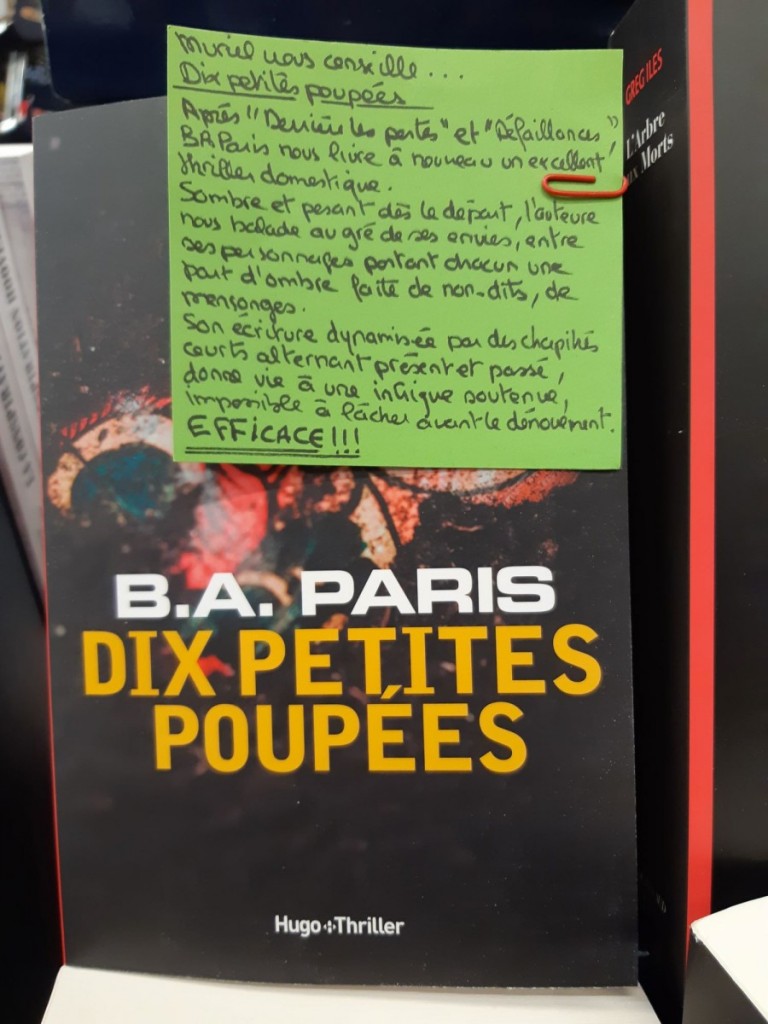 Muriel nous conseille...
Dix petites poupées
Après "Derrière les portes" et "Défaillances",
BA Paris nous livre à nouveau un excellent
thriller domestique.
Sombre et pesant dès le départ, l'auteure
nous balade au gré de ses envies, entre
ses personnages portant chacun une
part d'ombre faite de non-dits, de
mensonges.
Son écriture dynamisée par des chapitres
courts alternant présent et passé,
donne vie à une intrigue soutenue,
impossible à lâcher avant le dénouement.
EFFICACE!!!
B.A. PARIS
DIX PETITES
POUPÉES
Hugo Thriller
GREG ILES
L'Arbre
aux Morts